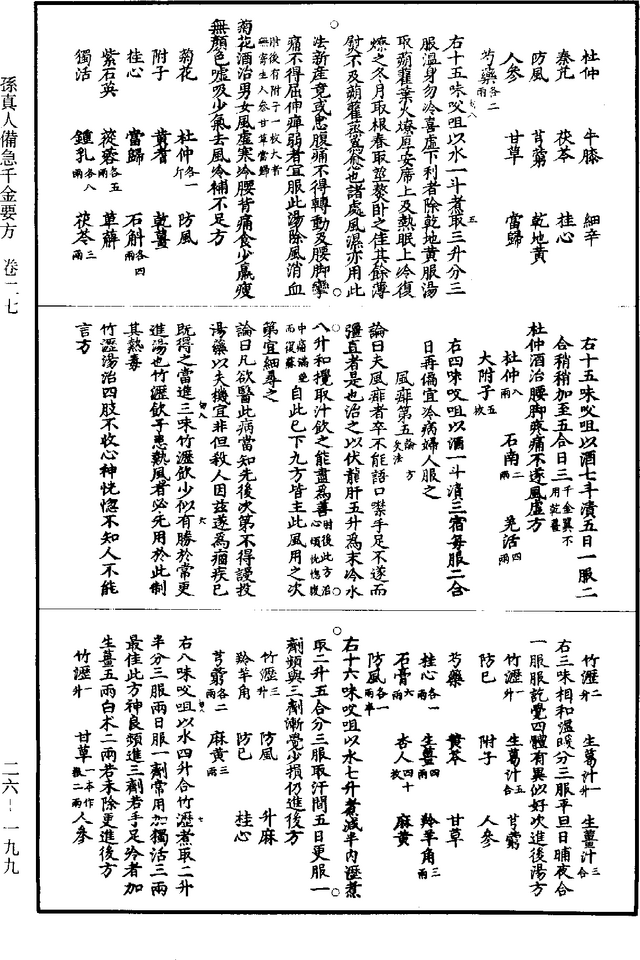 杜仲 牛膝 細辛
秦艽 茯苓 桂心
防風 芎藭 乾地黃
人參 甘草 當歸
芍藥各二兩
右十五味㕮咀以水一斗煮取三升分三
服溫身勿冷喜虛下利者除乾地黃服湯
取蒴藋葉火燎厚安席上及熱眠上冷復
燎之冬月取根春取莖熬臥之佳其餘薄
熨不及蒴藋蒸為愈也諸處風濕亦用此
法新產竟或患腹痛不得轉動及腰腳攣
痛不得屈伸痺弱者宜服此湯除風消血
肘後有附子一枚大者
無寄生人參甘草當歸
菊花酒治男女風虛寒冷腰背痛食少羸瘦
無顏色噓吸少氣去風冷補不足方
菊花 杜仲各一斤 防風
附子 黃耆 乾薑
桂心 當歸 石斛各四兩
紫石英 蓯蓉各五兩 萆薢
獨活 鍾乳各八兩 茯苓三兩
右十五味㕮咀以酒七斗漬五日一服二
合稍稍加至五合日三千金翼不用乾薑
杜仲酒治腰腳疼痛不遂風虛方
杜仲八兩 石南二兩 羌活四兩
大附子五枚
右四味㕮咀以酒一斗漬三宿每服二合
日再偏宜冷病婦人服之
風痱第五論 方 灸法
論曰夫風痱者卒不能語口噤手足不遂而
彊直者是也治之以伏龍肝五升為末冷水
八升和攪取汁飲之能盡為善肘後此方治心煩恍惚腹
中痛滿絕而復蘇自此已下九方皆主此風用之次
第宜細尋之
論曰凡欲醫此病當知先後次第不得謾投
湯藥以失機宜非但殺人因茲遂為痼疾已
既得之當進三味竹瀝飲少似有勝於常更
進湯也竹瀝飲子患熱風者必先用於此制
其熱毒
竹瀝湯治四肢不收心神恍惚不知人不能
言方
竹瀝二升 生葛汁一升 生薑汁三合
右三味相和溫暖分三服平旦日晡夜合
一服服訖覺四體有異似好次進後湯方
竹瀝一升 生葛汁五合 芎藭
防己 附子 人參
芍藥 黃芩 甘草
桂心各一兩 生薑四兩 羚羊角三兩
石膏六兩 杏人四十枚 麻黃
防風各一兩半
右十六味㕮咀以水七升煮減半內瀝煮
取二升五合分三服取汗間五日更服一
劑頻與三劑漸覺少損仍進後方
竹瀝三升 防風 升麻
羚羊角 防己 桂心
芎藭各二兩 麻黃三兩
右八味㕮咀以水四升合竹瀝煮取二升
半分三服兩日服一劑常用加獨活三兩
最佳此方神良頻進三劑若手足冷者加
生薑五兩白朮二兩若未除更進後方
竹瀝一升 甘草一本作 人參
孫真人備急千金要方 卷二七
二六-一九九